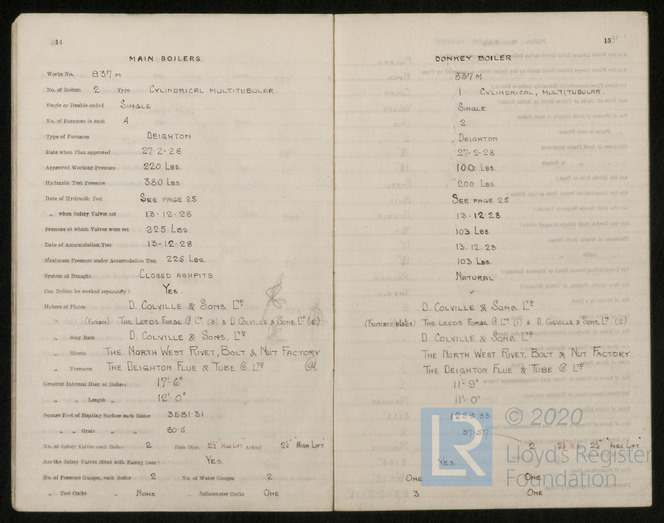 14
MAIN BOILERS
Works No. 837 M
No. of Boilers 2 Type CYLINDRICAL MULTITUBULAR
Single or Double-ended SINGLE
No. of Furnaces in each 4
Type of Furnaces DEIGHTON
Date when Plan approved 27-2-28
Approved Working Pressure 220 LBS
Hydraulic Test Pressure 380 LBS
Date of Hydraulic Test SEE PAGE 25
„ when Safety Valves set 13-12-28
Pressure at which Valves were set 225 LBS
Date of Accumulation Test 13-12-28
Maximum Pressure under Accumulation Test 225 LBS
System of Draught CLOSED ASHPITS
Can Boilers be worked separately? YES
Makers of Plates D. COLVILLE & SONS. LTD
„ (Furnace) THE LEEDS FORGE Co LD (3) & D. COLVILLE & SONS. LTD
„ Stay Bars D. COLVILLE & SONS. LTD
„ Rivets THE NORTH WEST RIVET, BOLT & NUT FACTORY
„ Furnaces THE DEIGHTON FLUE & TUBE Co. LTD
Greatest Internal Diam. of Boilers 17'-6"
„ „ Length „ 12'-0"
Square Feet of Heating Surface each Boiler 3531.31
„ „ Grate „ 80.5
No. of Safety Valves each Boiler 2 Rule Diam. 2½" HIGH LIFT Actual 2½" "HIGH LIFT"
Are the Safety Valves fitted with Easing Gear? YES
No. of Pressure Gauges, each Boiler 2 No. of Water Gauges 2
„ Test Cocks „ NONE „ Salinometer Cocks ONE
15
DONKEY BOILER
837 M
1 CYLINDRICAL, MULTITUBULAR
SINGLE
2
DEIGHTON
27-2-28
100 LBS
200 LBS
SEE PAGE 25
13-12-28
103 LBS
13.12.28
103 LBS
NATURAL
D. COLVILLE & SONS. LTD
(Furnace plates) THE LEEDS FORGE Co LTD & D. COLVILLE & SONS. LTD (2)
D. COLVILLE & SONS. LTD
THE NORTH WEST RIVET, BOLT & NUT FACTORY
THE DEIGHTON FLUE & TUBE Co. LTD
11'-9"
11'-0"
1259.33
37.57
2 2½" H.L. 2½" "HIGH LIFT"
YES
ONE ONE
3 ONE
LR © 2020
Lloyd's Register
Foundation